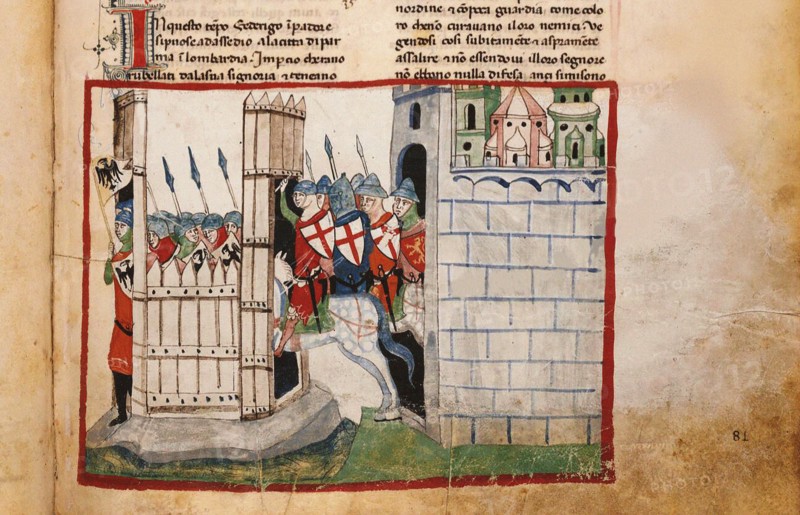 In questo tēpo Federigo īpadore
si puose ad assedio a la citta di par
ma ī lombardia. Imp cio cherano
rubellati da la sua signoria ⁊ teneano
nordine ⁊ cō poca guardia come colo
ro cheno curavano i loro nemici. Ve
gendosi cosi subitamēte ⁊ aspramēte
assalire ⁊ nō essendovi il loro segnore
nō ebbono nulla difesa anzi si misono
81
PHOTO12